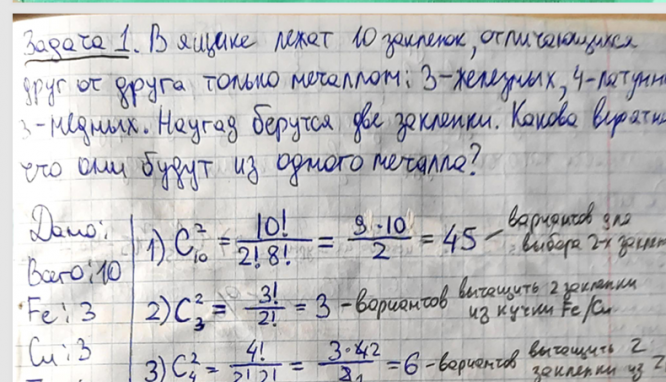 Задача 1. В ящике лежат 10 заклепок, отличающихся
друг от друга только металлом: 3-железных, 4-латунн
3-медных. Наугад берутся две заклепки. Какова вероятн
что они будут из одного металла?
Дано:
Всего: 10
Fe: 3
Cu: 3
1) C₁₀² = 10!/2!8! = 9·10/2 = 45 – вариантов для
выбора 2-х заклеп
2) C₃² = 3!/2! = 3 – вариантов вытащить 2 заклепки
из кучки Fe/Cu
3) C₄² = 4!/2!2! = = 6 – вариантов вытащить 2
заклепки из